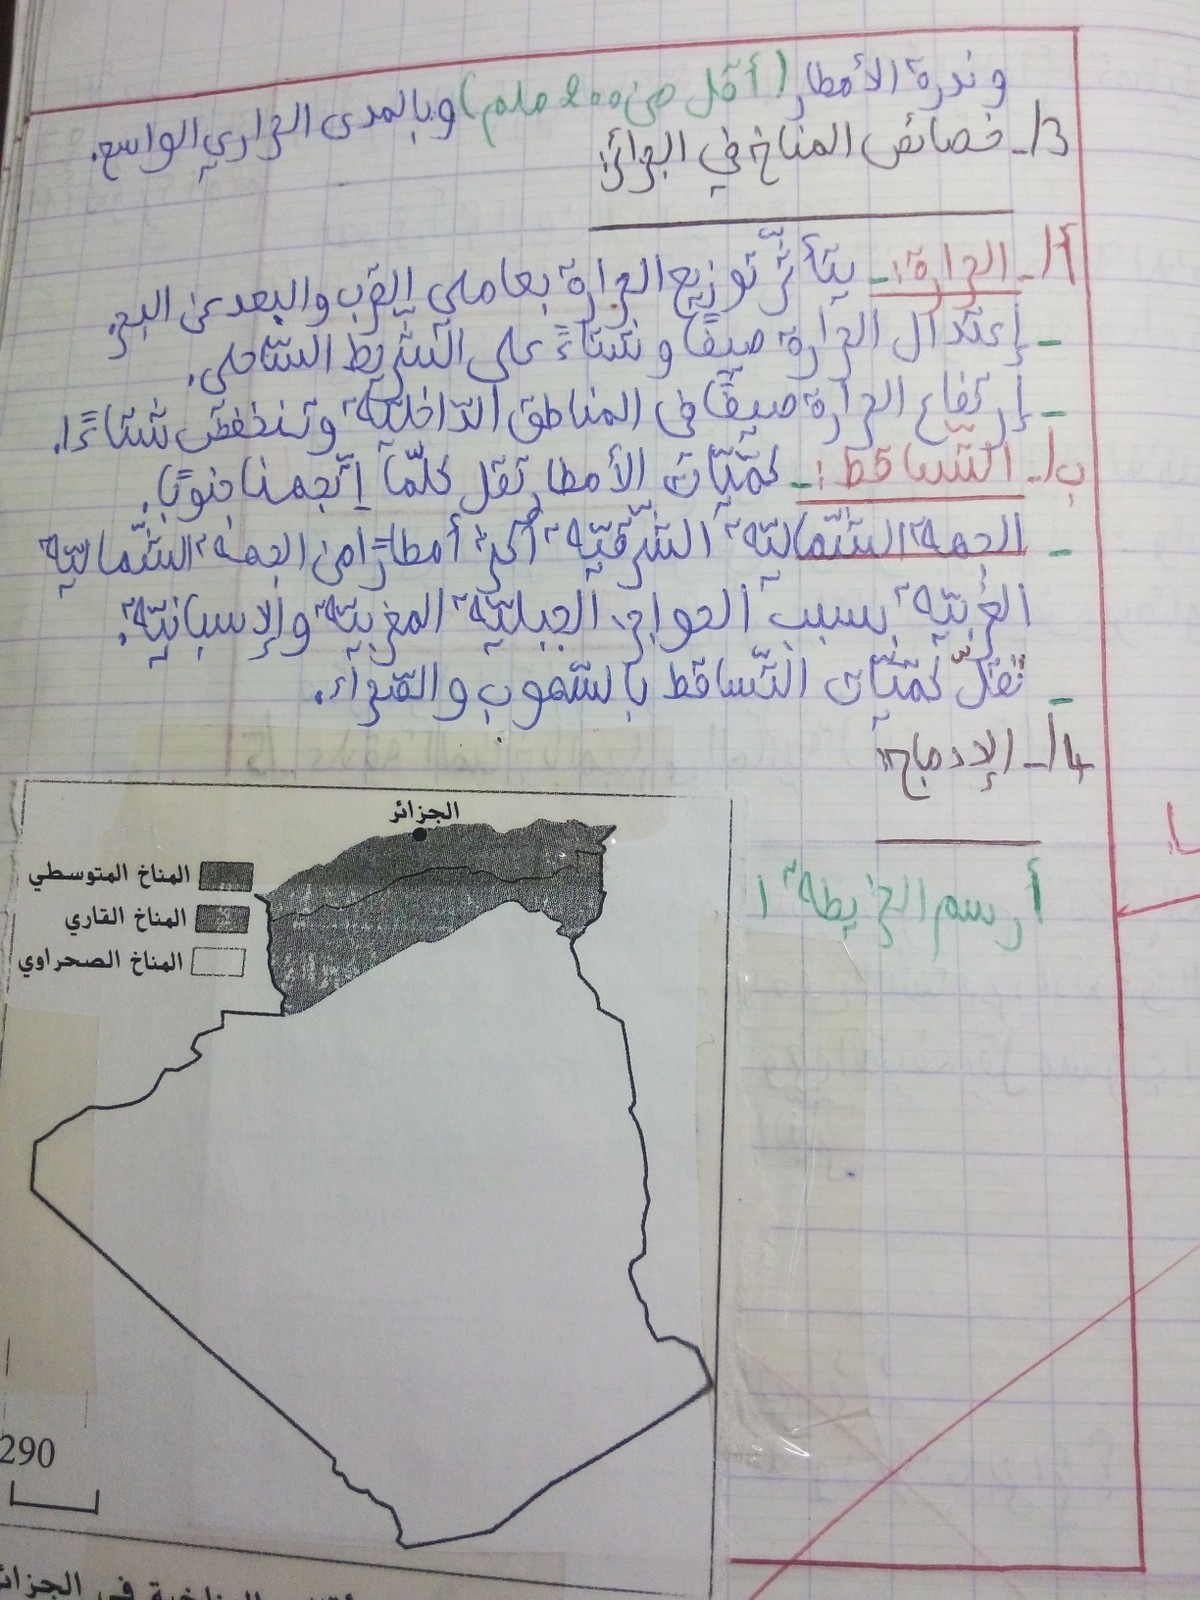 و ندرة الأمطار (أقل من 200 ملم) و بالمدى الحراري الواسع.
3/- خصائص المناخ في الجزائر:
أ/- الحرارة:- يتأثّر توزيع الحرارة بعاملي القرب والبعد عن البحر.
- إعتدال الحرارة صيفًا و شتاءً على الشّريط السّاحلي.
- إرتفاع الحرارة صيفًا في المناطق الدّاخليّة و تنخفض شتاءًا.
ب/- التّساقط:- كمّيّات الأمطار تقل كلّما إتّجهنا جنوبًا.
- الجهة الشّماليّة الشّرقيّة أكثر أمطارًا من الجهة الشّماليّة
الغربيّة بسبب الحواجز الجبليّة المغربيّة والإسبانيّة.
- تقلّ كمّيّات التّساقط بالسّهوب والصّحراء.
4/- الإدماج:
أرسم الخريطة:
الجزائر
المناخ المتوسطي
المناخ القاري
المناخ الصحراوي
290
المناخية في الجزائر